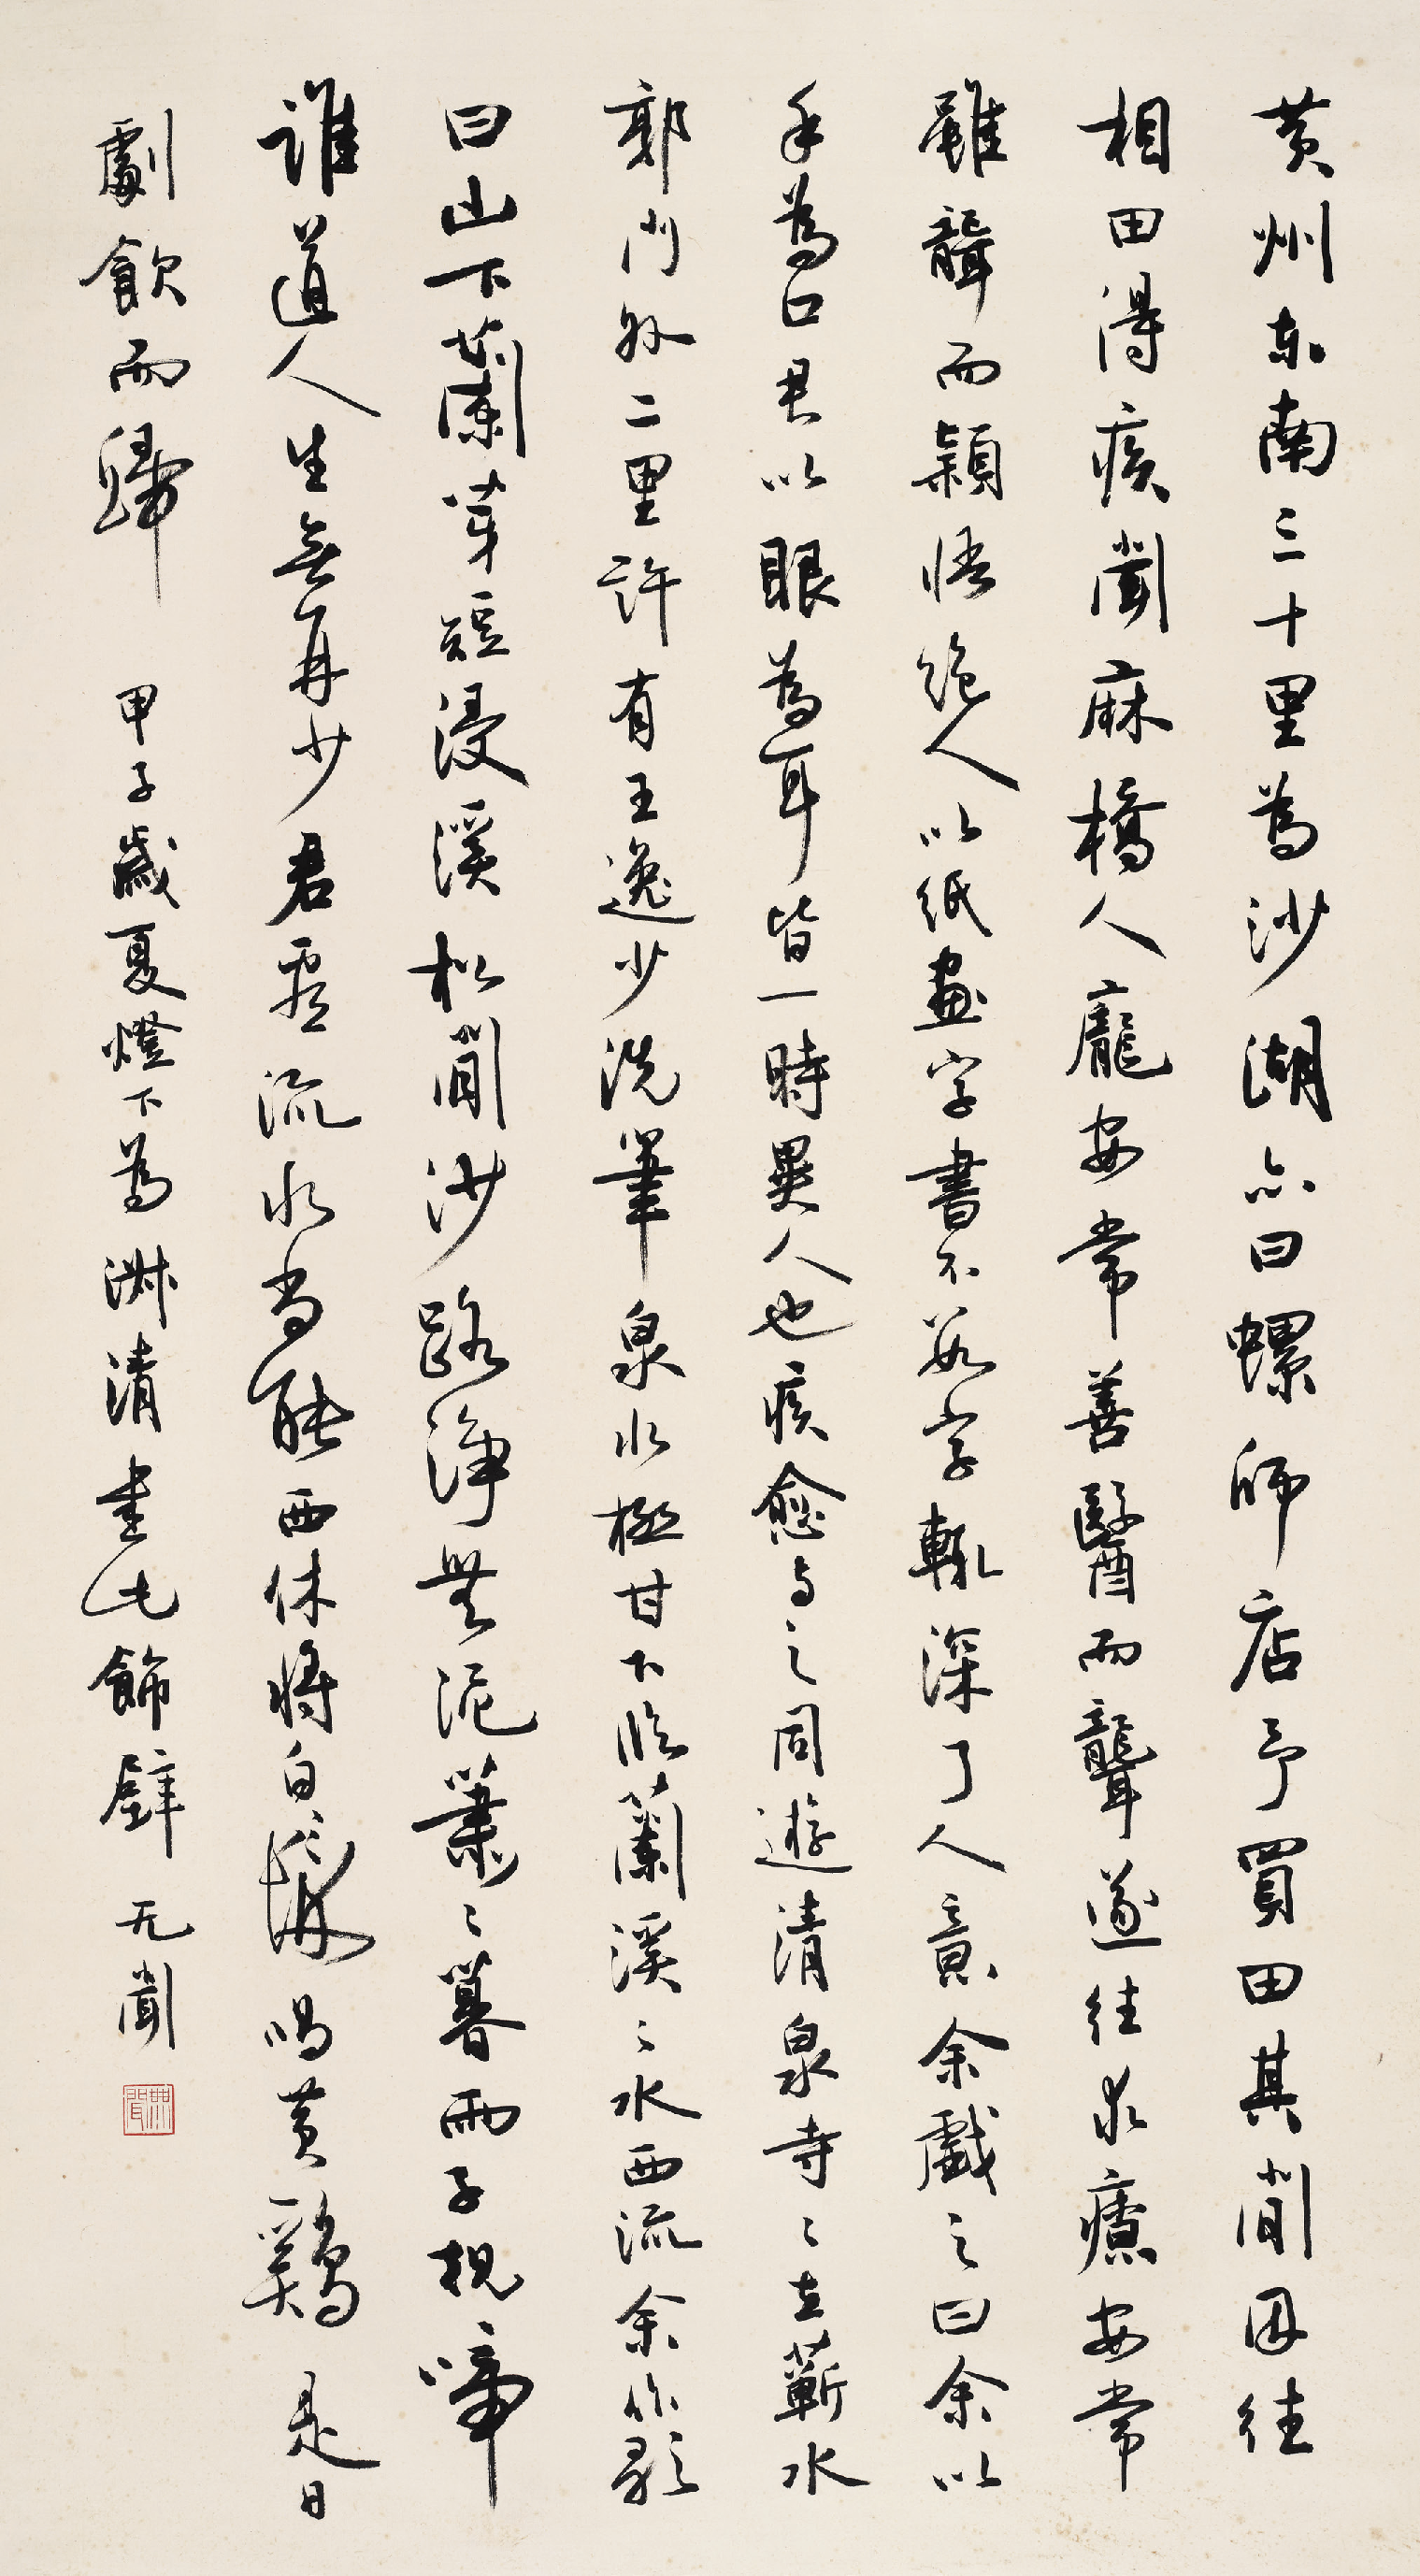 黄州东南三十里為沙湖亦曰螺師店予買田其間因往
相田得疾聞麻橋人龐安常善醫而聾遂往求療安常
雖聾而穎悟絶人以紙畫字書不数字輒深了人意余戲之曰余以
手為口君以眼為耳皆一時異人也疾愈与之同遊清泉寺〻在蘄水
郭门外二里許有王逸少洗筆泉水極甘下臨蘭溪〻水西流余作歌
曰山下蘭芽短浸溪松間沙路淨無泥蕭〻暮雨子規啼
誰道人生無再少君看流水尚能西休將白髮唱黄鷄是日
劇飲而歸 甲子歲夏燈下為淋清書此飾壁 无聞
無聞